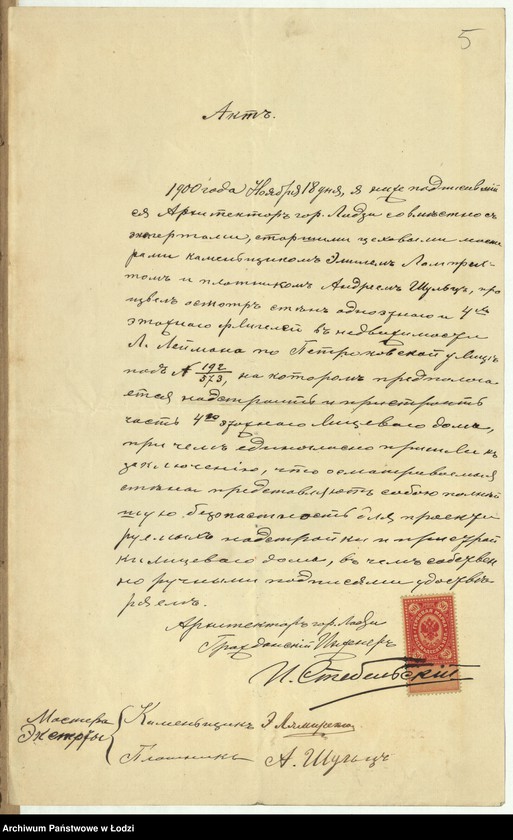 5
Актъ.
1900 года Ноября 18 дня, я ниже подписавшій
ся Архитекторъ гор. Лодзи совмѣстно съ
экспертами, старшими цеховыми масте
рами каменьщикомъ Эмилемъ
и плотникомъ Андреемъ Шульцъ, про
извелъ осмотръ стѣнъ одноэтажнаго и 4хъ
этажнаго флигелей въ недвижимости
Л. Леймана по Петроковской улицѣ
подъ № 192/573, на которомъ предполага
ется надстроить и пристроить
часть 4хъ этажнаго лицеваго дома,
при чемъ единогласно пришли къ
заключенію, что осматриваемыя
стѣны представляютъ собою полнѣй
шую безопасность для проекти
руемыхъ надстройки и пристрой
ки лицеваго дома, въ чемъ собствен
но ручными подписями удостовѣ
ряемъ.
Архитекторъ гор. Лодзи
Гражданскій Инженеръ
И. Стебельскій
Мастера Эксперты
Каменьщикъ Э
Плотникъ А. Шульцъ
Archiwum Państwowe w Łodzi